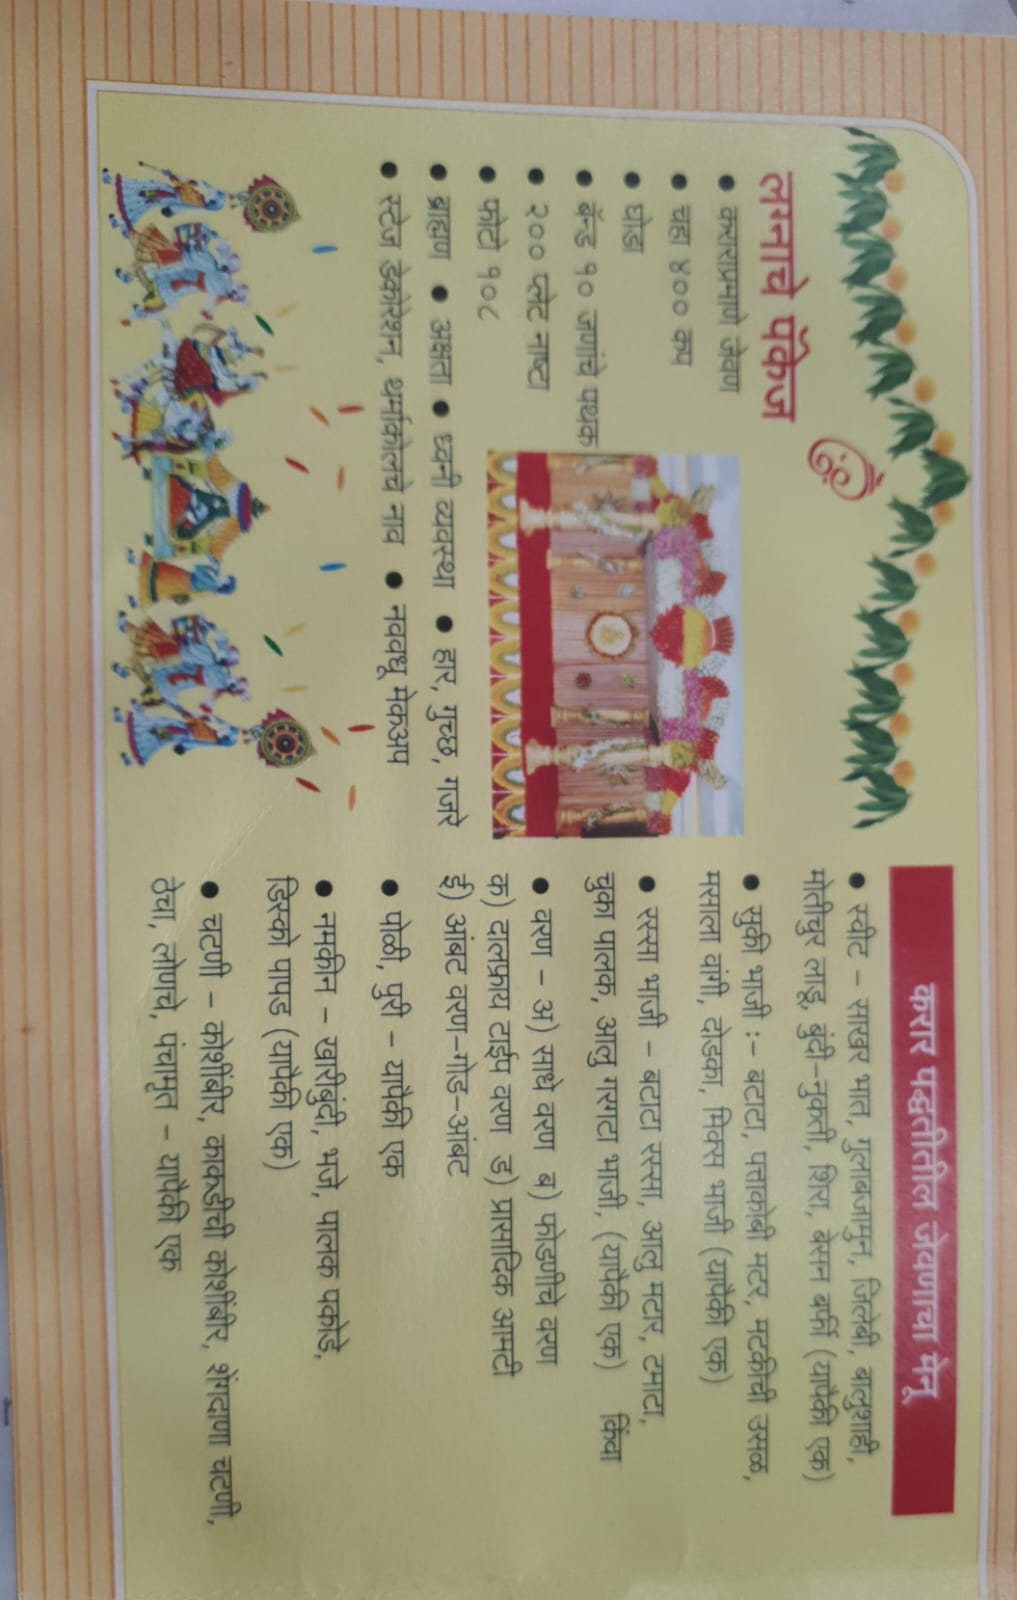 ॐ
लग्नाचे पॅकेज
• कराराप्रमाणे जेवण
• चहा ४०० कप
• घोडा
• बॅन्ड १० जणांचे पथक
• २०० प्लेट नाष्टा
• फोटो १०८
• ब्राह्मण • अक्षता • ध्वनी व्यवस्था • हार, गुच्छ, गजरे
• स्टेज डेकोरेशन, थर्माकोलचे नाव • नववधू मेकअप
करार पद्धतीतील जेवणाचा मेनू
• स्वीट – साखर भात, गुलाबजामुन, जिलेबी, बालुशाही,
मोतीचुर लाडू, बुंदी–नुकती, शिरा, बेसन बर्फी (यापैकी एक)
• सुकी भाजी :– बटाटा, पत्ताकोबी मटर, मटकीची उसळ,
मसाला वांगी, दोडका, मिक्स भाजी (यापैकी एक)
• रस्सा भाजी – बटाटा रस्सा, आलु मटार, टमाटा,
चुका पालक, आलु गरमाटा भाजी, (यापैकी एक) किंवा
• वरण – अ) साधे वरण ब) फोडणीचे वरण
क) दालफ्राय टाईप वरण ड) प्रासादिक आमटी
ई) आंबट वरण–गोड–आंबट
• पोळी, पुरी – यापैकी एक
• नमकीन – खारीबुंदी, भजे, पालक पकोडे,
डिस्को पापड (यापैकी एक)
• चटणी – कोशींबीर, काकडीची कोशींबीर, शेंगदाणा चटणी,
ठेचा, लोणचे, पंचामृत – यापैकी एक